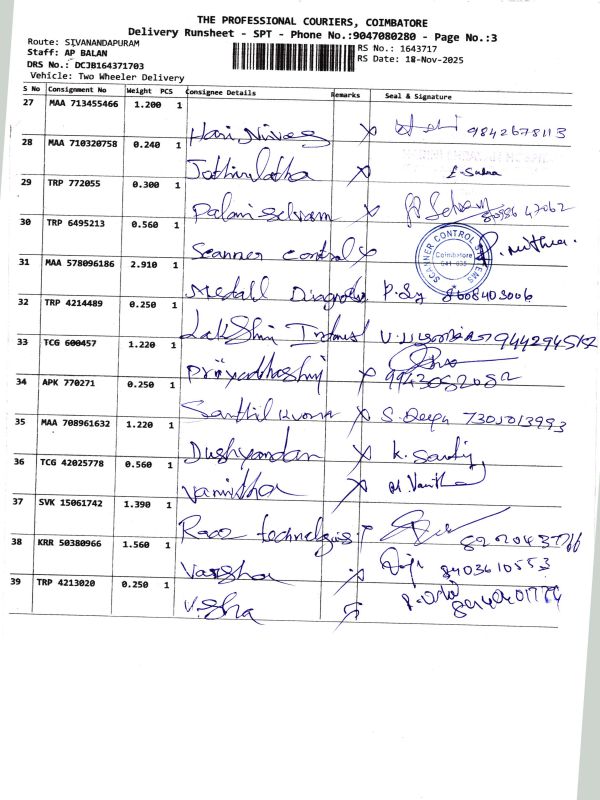 THE PROFESSIONAL COURIERS, COIMBATORE
Delivery Runsheet - SPT - Phone No.:9047080280 - Page No.:3
Route: SIVANANDAPURAM
Staff: AP BALAN
RS No.: 1643717
DRS No.: DCJB164371703
RS Date: 18-Nov-2025
Vehicle: Two Wheeler Delivery
S No Consignment No Weight PCS Consignee Details Remarks Seal & Signature
27 MAA 713455466 1.200 1
Hari Nivas X 9842678113
28 MAA 710320758 0.240 1
Jothirlatha X
29 TRP 772055 0.300 1
Palani selvam X
30 TRP 6495213 0.560 1
Scanner control X
SCANNER CONTROL SYSTEMS
Coimbatore
641 035
31 MAA 578096186 2.910 1
Medall 8608403006
32 TRP 4214489 0.250 1
Lakshmi
33 TCG 600457 1.220 1
X 9943082082
34 APK 770271 0.250 1
X S. Deepa 7305013993
35 MAA 708961632 1.220 1
Dushyandan X
36 TCG 42025778 0.560 1
Vanitha X
37 SVK 15061742 1.390 1
38 KRR 50380966 1.560 1
Varsha 8403610553
39 TRP 4213020 0.250 1